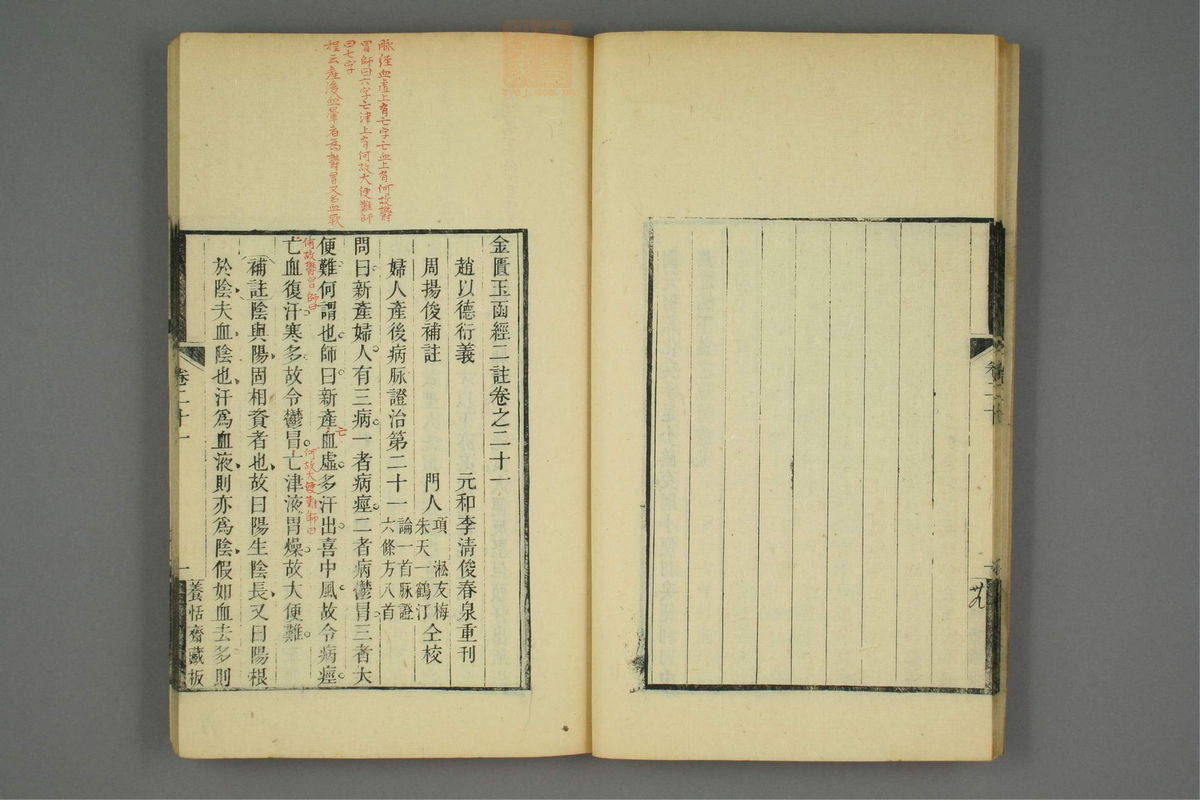 卷二十
九
脉經血虛上有亡字亡血上有何故鬱
冒師曰六字亡津上有何故大便難師
曰七字
程云產後血暈者為鬱冒又名血厥
金匱玉函經二註卷之二十一
趙以德衍義 元和李清俊春泉重刊
周揚俊補註 門人項 淞友梅 朱天一鶴汀仝校
婦人產後病脉證治第二十一 論一首脉證 六條方八首
問曰新產婦人有三病一者病痙二者病鬱冒三者大
便難何謂也師曰新產血虛多汗出喜中風故令病痙
亡
何故鬱冒師曰
何故大便難師曰
亡血復汗寒多故令鬱冒亡津液胃燥故大便難
補註陰與陽固相資者也故曰陽生陰長又曰陽根
於陰夫血陰也汗爲血液則亦爲陰假如血去多則
卷二十一
一
養恬齋藏板